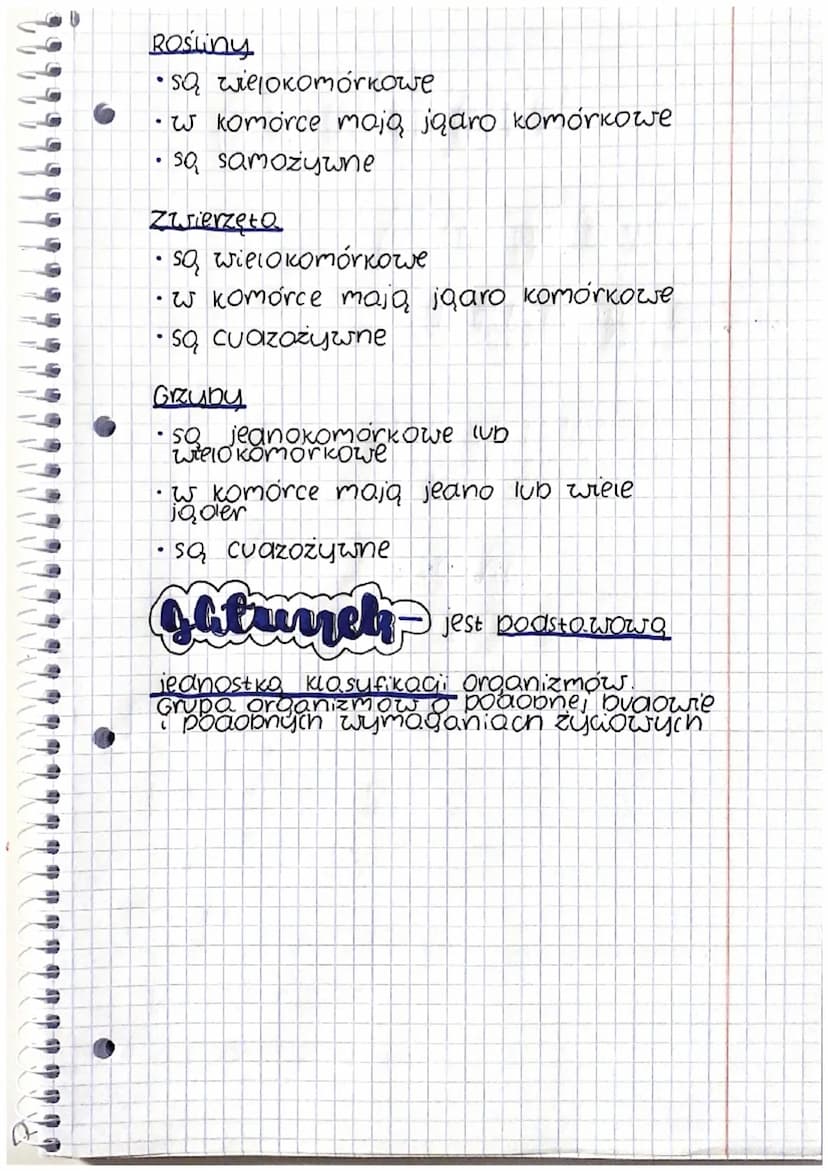 Rośliny
• są wielokomórkowe
• w komórce mają jądro komórkowe
• są samożywne
Zwierzęta
• są wielokomórkowe
• w komórce mają jądro komórkowe
• są cudzożywne
Grzyby
• są jednokomórkowe lub
wielokomórkowe
• w komórce mają jedno lub wiele
jąder
• są cudzożywne
gatunek - jest podstawową
jednostką klasyfikacji organizmów.
Grupa organizmów o podobnej budowie
i podobnych wymaganiach życiowych